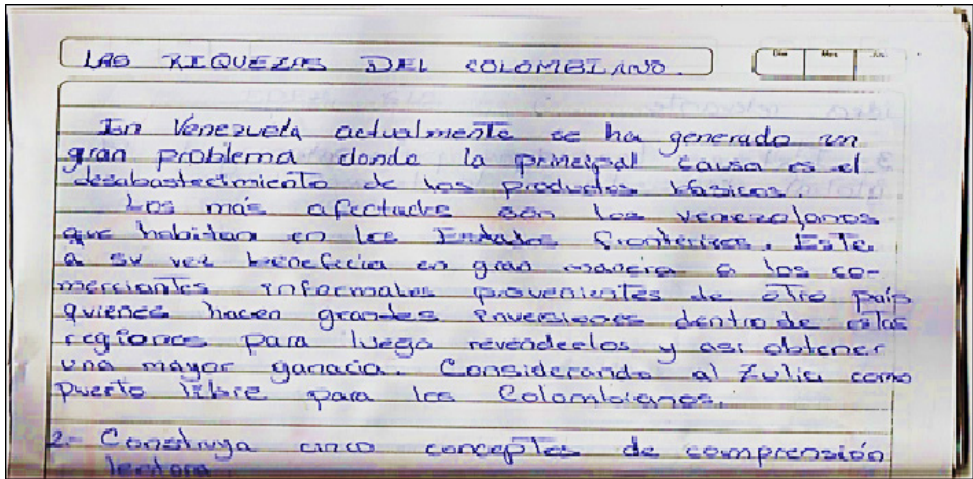 LAS RIQUEZAS DEL COLOMBIANO.
Día Mes Año
En Venezuela actualmente se ha generado un
gran problema donde la principal causa es el
desabastecimiento de los productos básicos.
Los más afectados son los venezolanos
que habitan en los Estados fronterizos. Este
a su vez beneficia en gran manera a los co-
merciantes informales provenientes de otro país
quienes hacen grandes inversiones dentro de estas
regiones para luego revenderlos y así obtener
una mayor ganacia. Considerando al Zulia como
puerto libre para los Colombianos.
2.- Construya cinco conceptos de comprensión
lectora.